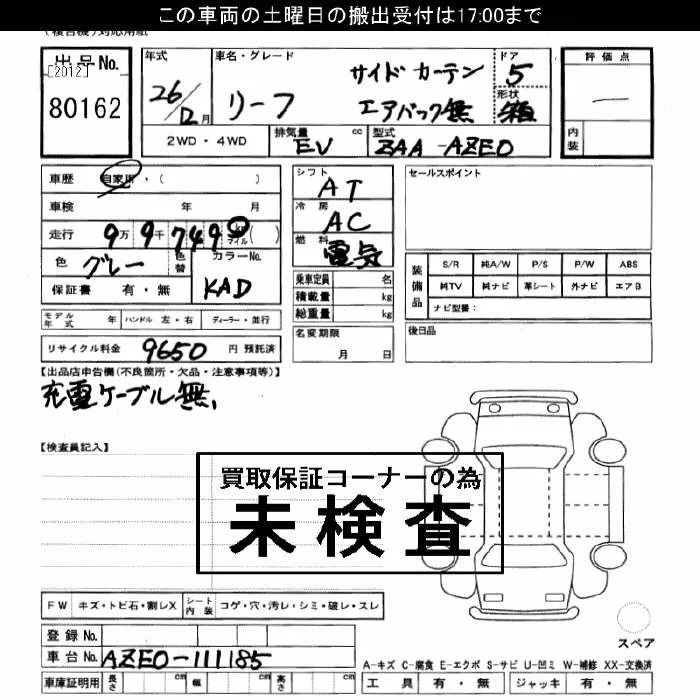 この車両の土曜日の搬出受付は17:00まで
(複合機)対応用紙
出品No.
[2012]
80162
年式
26/12月
車名・グレード
リーフ
サイド カーテン
エアバック無
ドア
5
形状
箱
評価点
—
内装
2WD・4WD
排気量 cc
EV
型式
ZAA-AZEO
車歴 自家用・( )
車検 年 月
走行 9万9千749 km マイル( )
色 グレー
色替
カラーNo.
KAD
保証書 有・無
シフト
AT
冷房
AC
燃料
電気
乗車定員 名
積載量 kg
総重量 kg
セールスポイント
装備品
S/R 純A/W P/S P/W ABS
純TV 純ナビ 革シート 外ナビ エアB
ナビ型番:
モデル年式 年 ハンドル 左・右 ディーラー・並行
名変期限
月 日
後日品
リサイクル料金 9650 円 預託済
【出品店申告欄(不良箇所・欠品・注意事項等)】
充電ケーブル無,
【検査員記入】
買取保証コーナーの為
未検査
FW キズ・トビ石・割レX シート内装 コゲ・穴・汚レ・シミ・破レ・スレ
登録No.
車台No. AZEO-111185
スペア
車庫証明用 長さ cm 幅 cm 高さ cm
A-キズ C-腐食 E-エクボ S-サビ U-凹ミ W-補修 XX-交換済
工具 有・無 ジャッキ 有・無